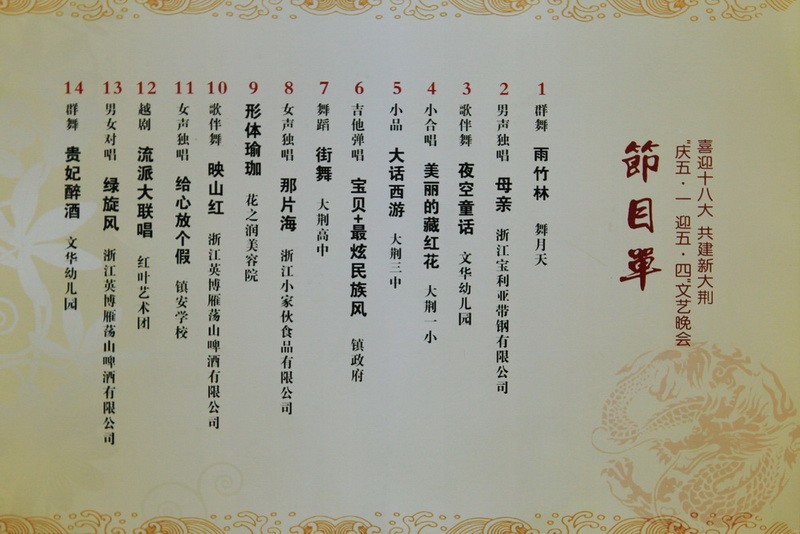 喜迎十八大 共建新大荆
“庆五·一 迎五·四”文艺晚会
節目單
1 群舞 雨竹林 舞月天
2 男声独唱 母亲 浙江宝利亚带钢有限公司
3 歌伴舞 夜空童话 文华幼儿园
4 小合唱 美丽的藏红花 大荆一小
5 小品 大话西游 大荆三中
6 吉他弹唱 宝贝+最炫民族风 镇政府
7 舞蹈 街舞 大荆高中
8 女声独唱 那片海 浙江小家伙食品有限公司
9 形体瑜珈 花之润美容院
10 歌伴舞 映山红 浙江英博雁荡山啤酒有限公司
11 女声独唱 给心放个假 镇安学校
12 越剧 流派大联唱 红叶艺术团
13 男女对唱 绿旋风 浙江英博雁荡山啤酒有限公司
14 群舞 贵妃醉酒 文华幼儿园